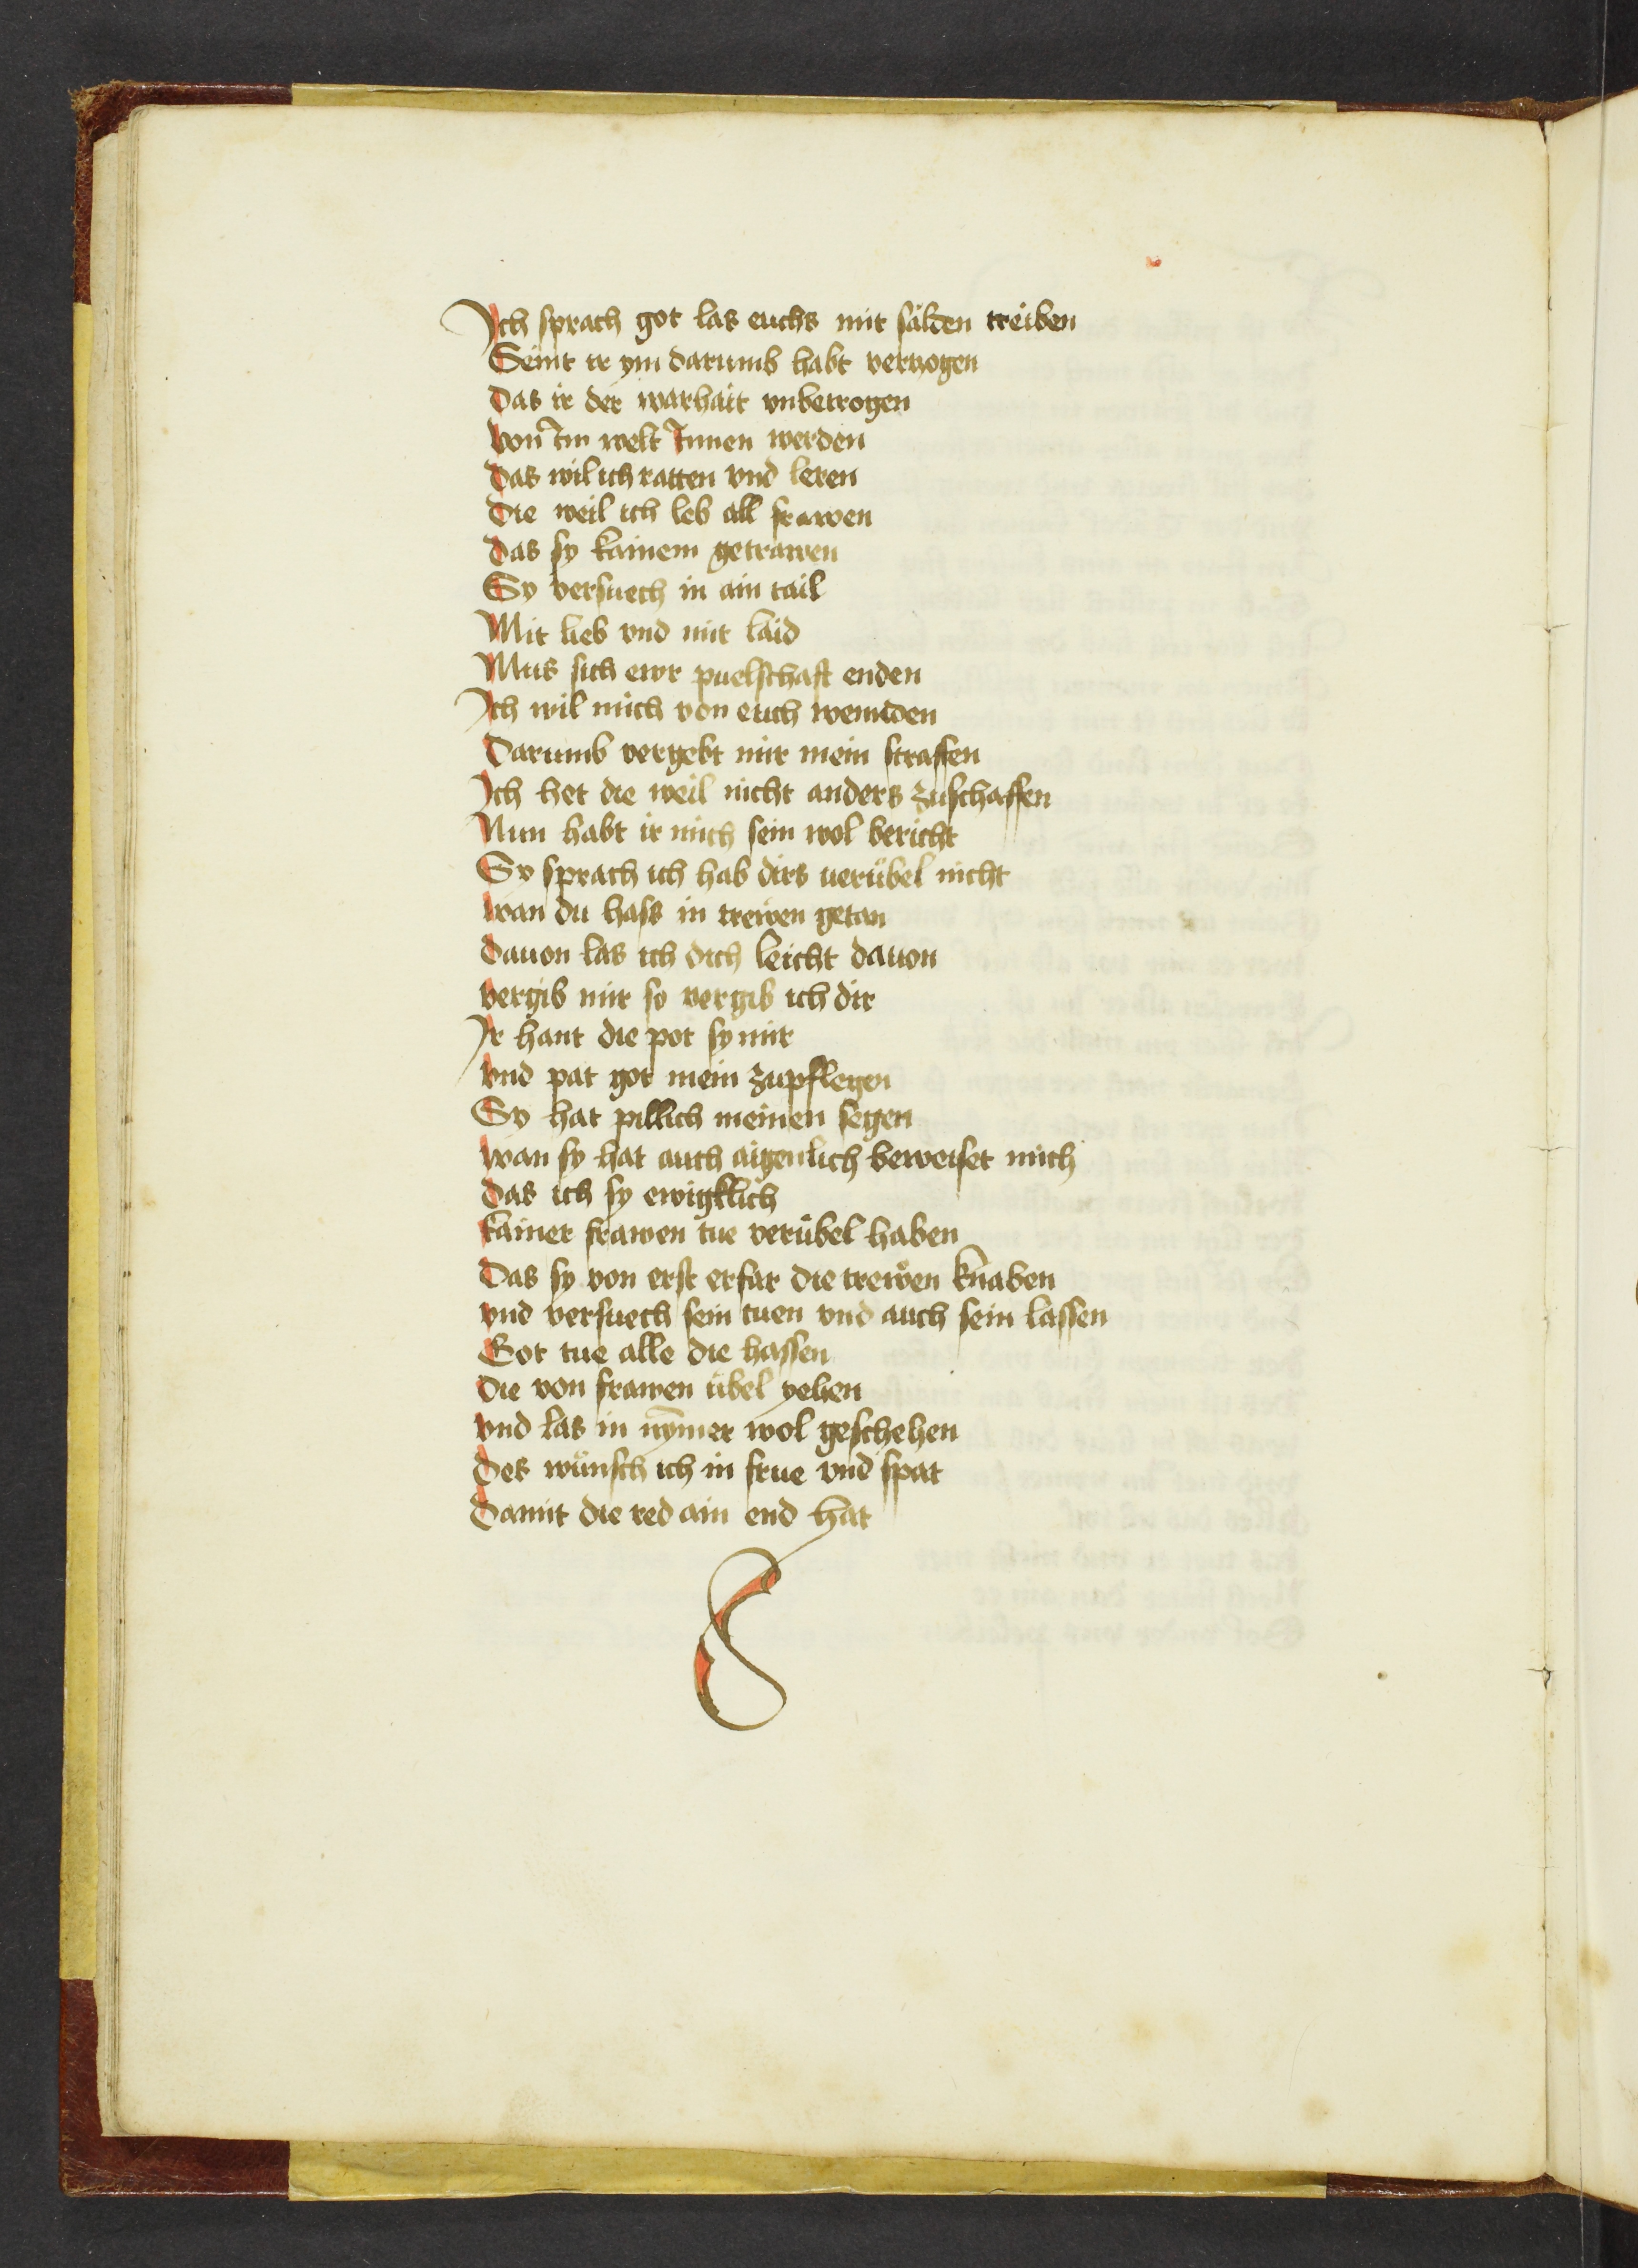 Ich sprach got las euchs mit säldn treiben
Seint ir ym darumb habt verzogen
Das ir der warhait vnbetrogen
Von Im welt Innen werden
Das wil ich ratten vnd leren
Die weil ich leb all frawen
Das sy kainem getrawen
Sy versuech in ain tail
Mit lieb vnd mit laid
Mus sich ewr puelschaft enden
Ich wil mich von euch wennden
Darumb vergebt mir mein straffen
Ich het die weil nicht anders zuschaffen
Nun habt ir mich sein wol bericht
Sy sprach ich hab dirs uerübel nicht
Wan du hass in trewen getan
Dauon las ich dich leicht dauon
Vergib mir so vergib ich dir
Ir hant die pot sy mir
Vnd pat got mein zupflegen
Sy hat pillich meinen segen
Wan sy hat auch aigenlich beweiset mich
Das ich sy ewigklich
Kainer frawen tue verübel haben
Das sy von erst erfar die trewen knaben
Vnd versuech sein tuen vnd auch sein lassen
Got tue alle die hassen
Die von frawen übel yehen
Vnd las in nymer wol geschehen
Des wünsch ich in frue vnd spat
Damit die red ain end hat